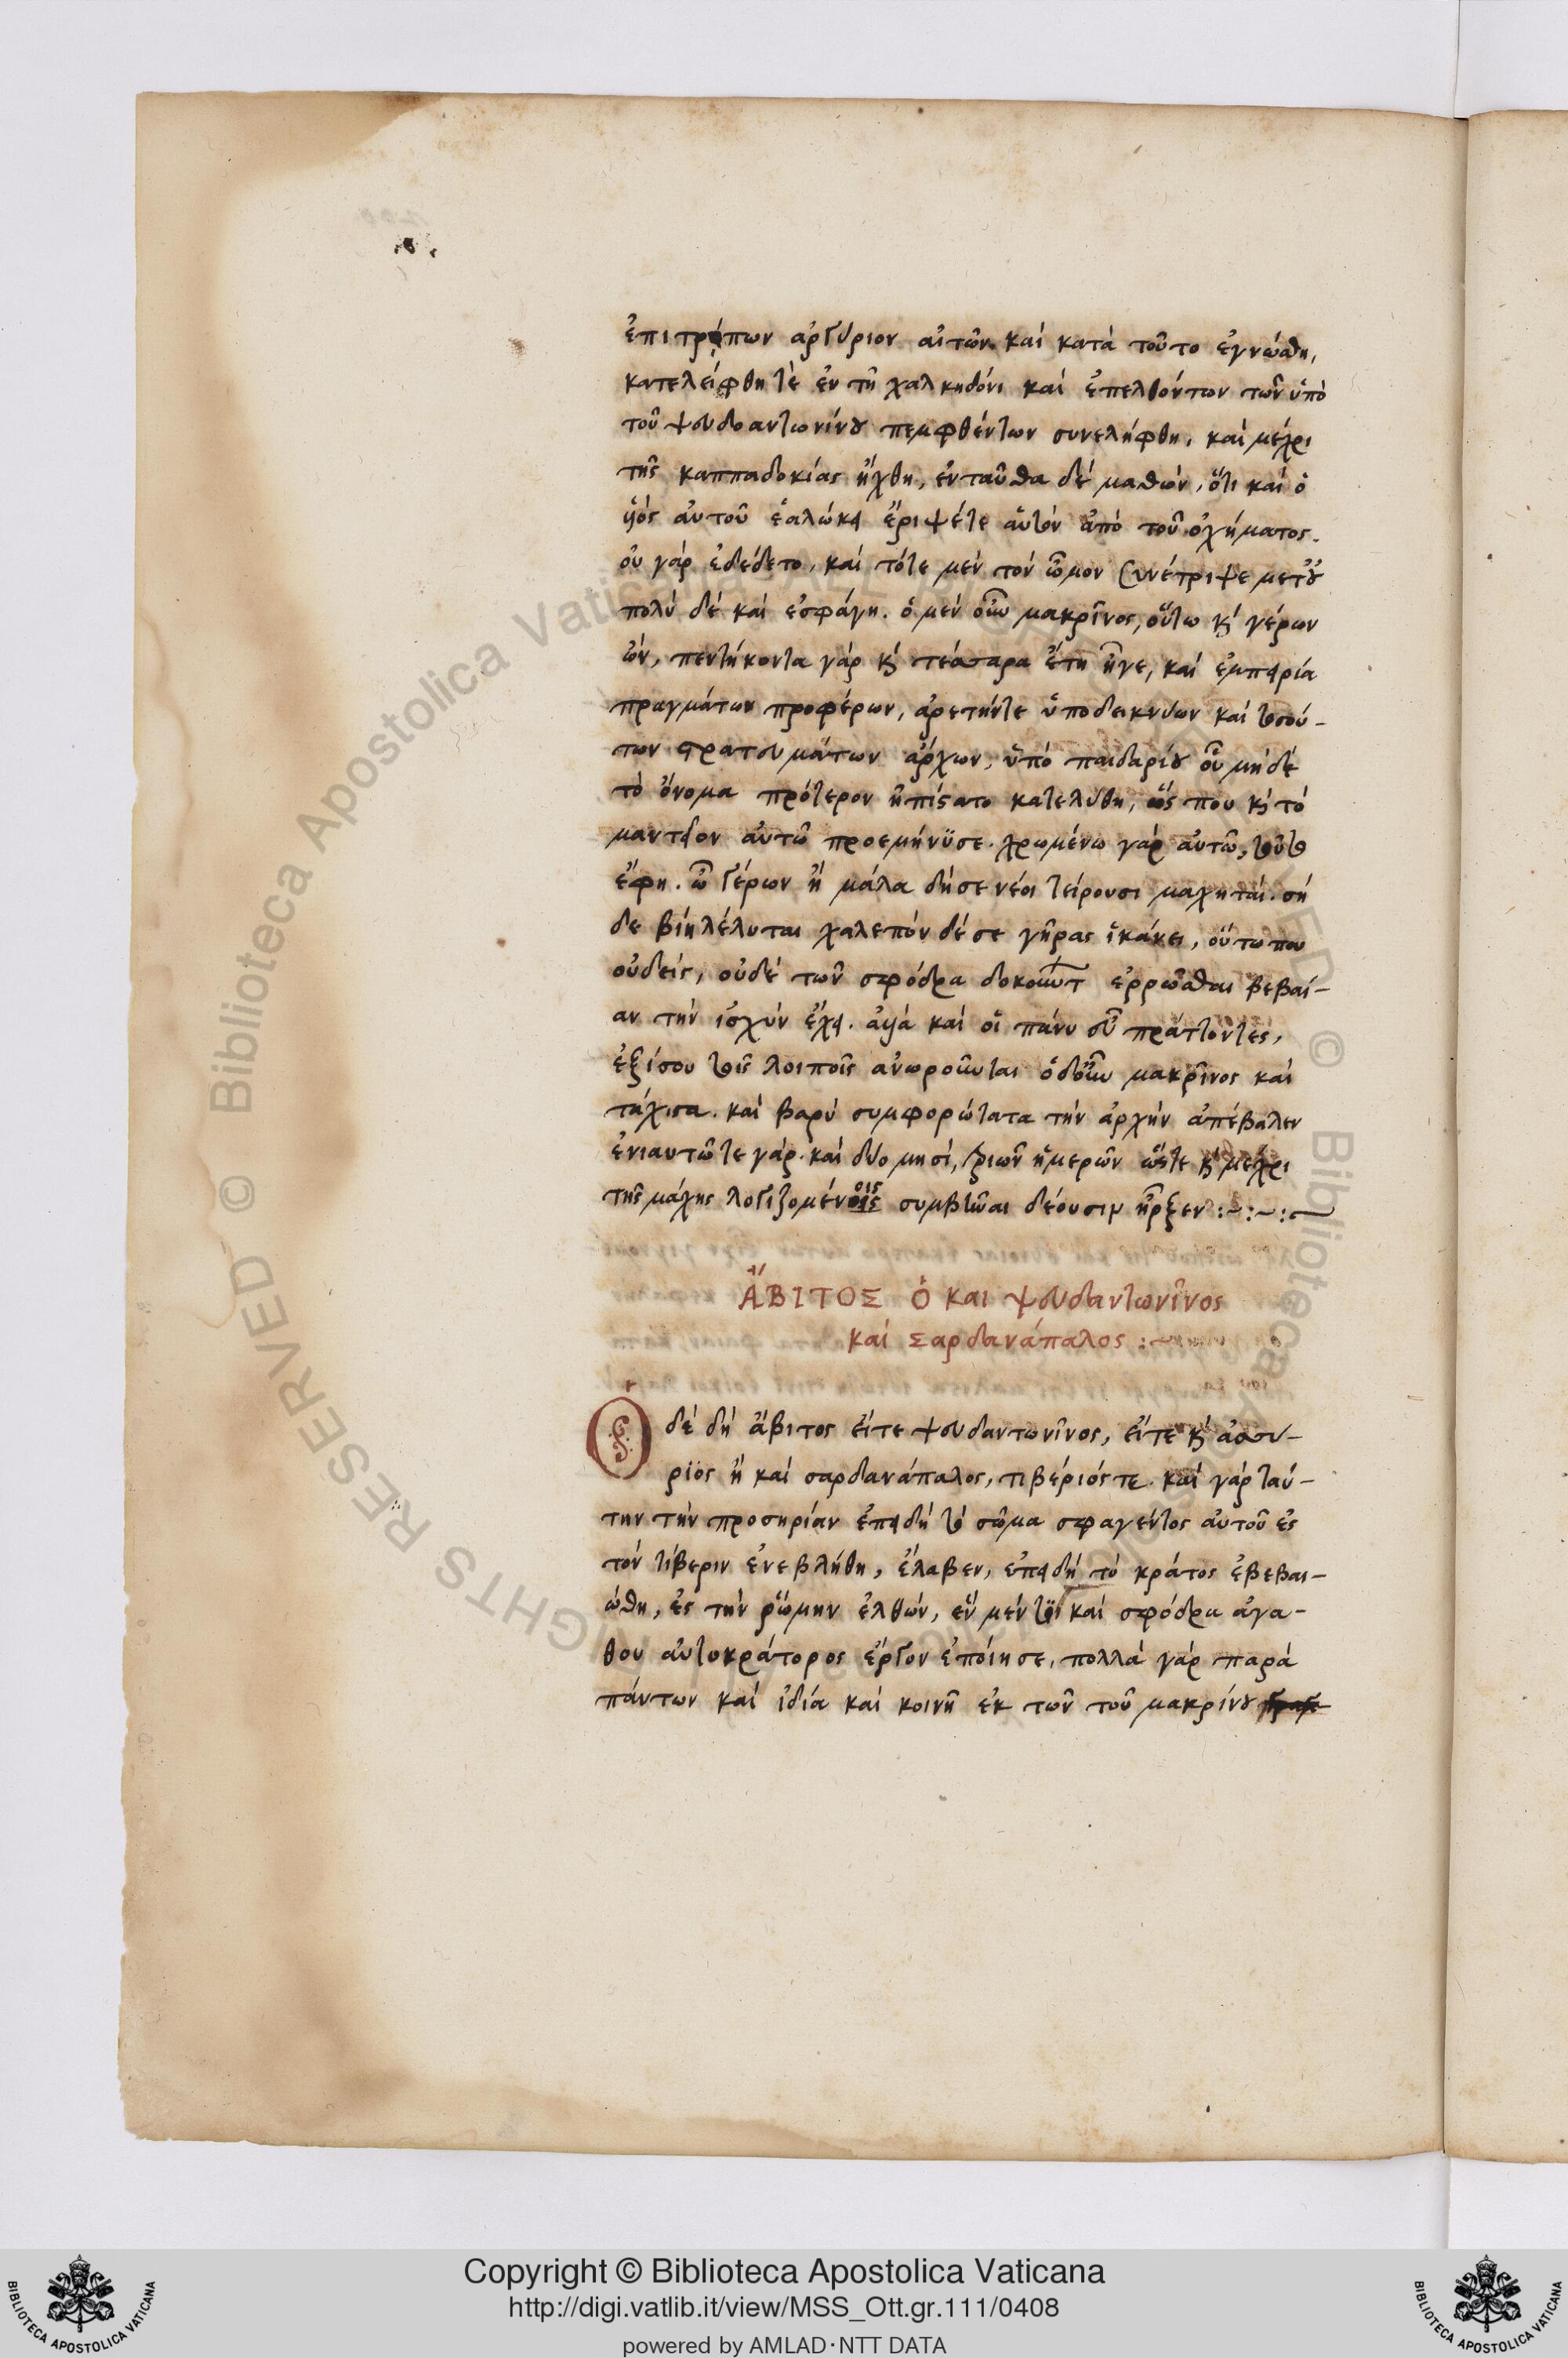 ἐπιτρόπων ἀργύριον αἰτῶν. καὶ κατὰ τοῦτο ἐγνώσθη,
κατελείφθη τὲ ἐν τῇ χαλκηδόνι καὶ ἐπελθόντων τῶν ὑπὸ
τοῦ ψευδοαντωνίνου πεμφθέντων συνελήφθη, καὶ μέχρι
τῆς καππαδοκίας ἤχθη, ἐνταῦθα δὲ μαθὼν, ὅτι καὶ ὁ
υἱὸς αὐτοῦ ἑαλώκει ἔριψέ τε αὑτὸν ἀπὸ τοῦ ὀχήματος.
οὐ γὰρ ἐδέδετο, καὶ τότε μὲν τὸν ὦμον συνέτριψε μετ' οὐ
πολὺ δὲ καὶ ἐσφάγη. ὁ μὲν οὖν μακρῖνος, οὕτω καὶ γέρων
ὢν, πεντήκοντα γὰρ καὶ τέσσαρα ἔτη ἦγε, καὶ ἐμπειρία
πραγμάτων προφέρων, ἀρετήν τε ὑποδεικνύων καὶ τοσού-
των στρατευμάτων ἄρχων, ὑπὸ παιδαρίου οὗ μηδὲ
τὸ ὄνομα πρότερον ἠπίστατο κατελύθη, ὥς που καὶ τὸ
μαντεῖον αὐτῶ προεμήνυσε. χρωμένω γὰρ αὐτῶ, τοῦτο
ἔφη. ὦ γέρων ἦ μάλα δή σε νέοι τείρουσι μαχηταί. σὴ
δε βίη λέλυται χαλεπὸν δέ σε γῆρας ἱκάνει, οὕτω που
οὐδεὶς, οὐδὲ τῶν σφόδρα δοκούντων ἐρρῶσθαι βεβαί-
αν τὴν ἰσχὺν ἔχει. ἀλλὰ καὶ οἱ πάνυ εὖ πράττοντες,
ἐξίσου τοῖς λοιποῖς αἰωροῦνται ὁ δ' οὖν μακρῖνος καὶ
τάχιστα. καὶ βαρυσυμφορώτατα τὴν ἀρχὴν ἀπέβαλεν
ἐνιαυτῶ τε γὰρ. καὶ δύο μησί, τριῶν ἡμερῶν ὥστε καὶ μέχρι
τῆς μάχης λογιζομένοις συμβῶσαι δέουσιν ἦρξεν :~:~:~
ἌΒΙΤΟΣ Ὁ και ψευδαντωνῖνος
καὶ Σαρδανάπαλος :~
Ὁ δὲ δὴ ἄβιτος εἴτε ψευδαντωνῖνος, εἴτε καὶ ἀσσύ-
ριος ἢ καὶ σαρδανάπαλος, τιβέριός τε. καὶ γὰρ ταύ-
την τὴν προσηρίαν ἐπειδὴ τὸ σῶμα σφαγέντος αὐτοῦ ἐς
τὸν τίβεριν ἐνεβλήθη, ἔλαβεν, ἐπειδὴ τὸ κράτος ἐβεβαι-
ώθη, ἐς τὴν ῥώμην ἐλθὼν, ἓν μέν τοι καὶ σφόδρα ἀγα-
θου αὐτοκράτορος ἔργον ἐποίησε, πολλὰ γὰρ παρὰ
πάντων καὶ ἰδία καὶ κοινῇ ἐκ τῶν τοῦ μακρίνου
Copyright © Biblioteca Apostolica Vaticana
http://digi.vatlib.it/view/MSS_Ott.gr.111/0408
powered by AMLAD·NTT DATA